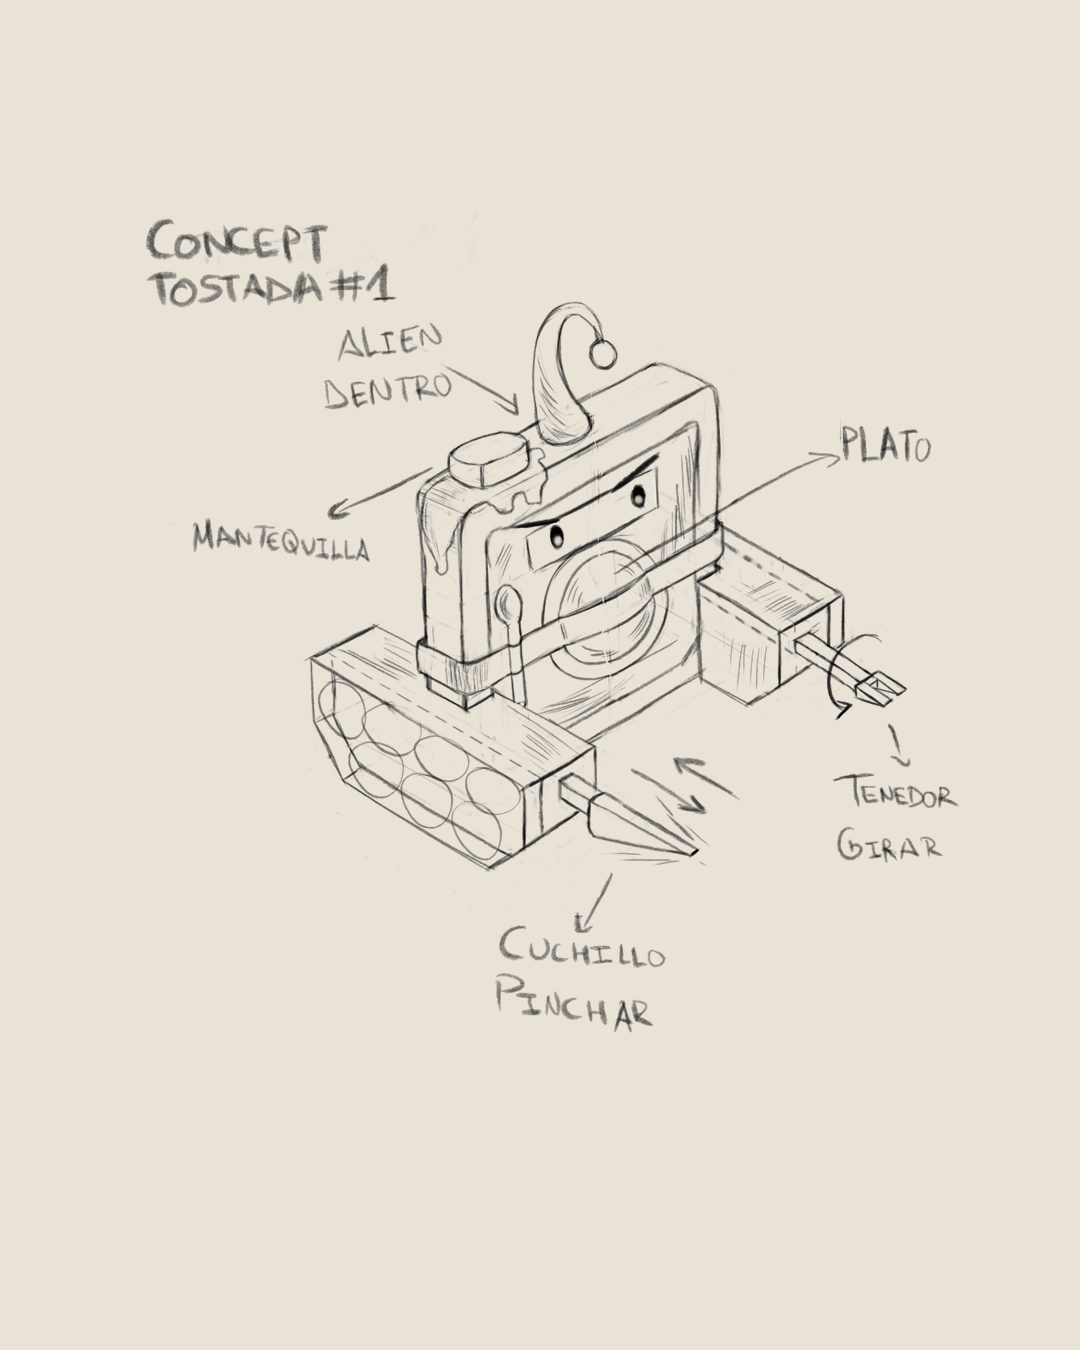 CONCEPT
TOSTADA #1
ALIEN
DENTRO
PLATO
MANTEQUILLA
TENEDOR
GIRAR
CUCHILLO
PINCHAR